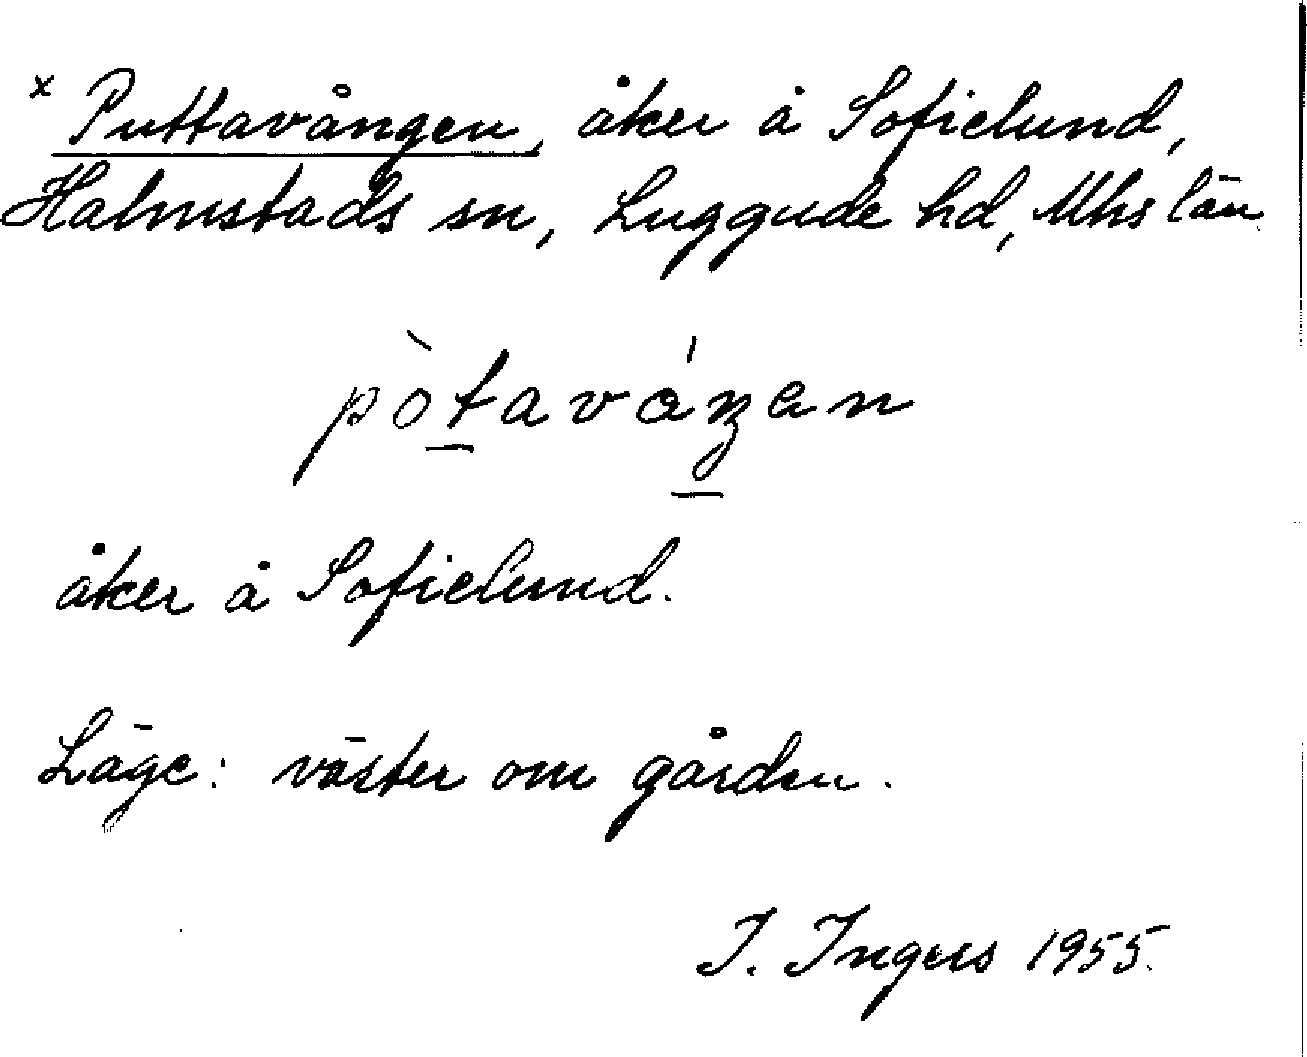 x Puttavången, åker å Sofielund,
Halmstads sn, Luggude hd, Mhs län
pòtaváŋen
åker å Sofielund.
Läge: väster om gården.
I. Ingers 1955.